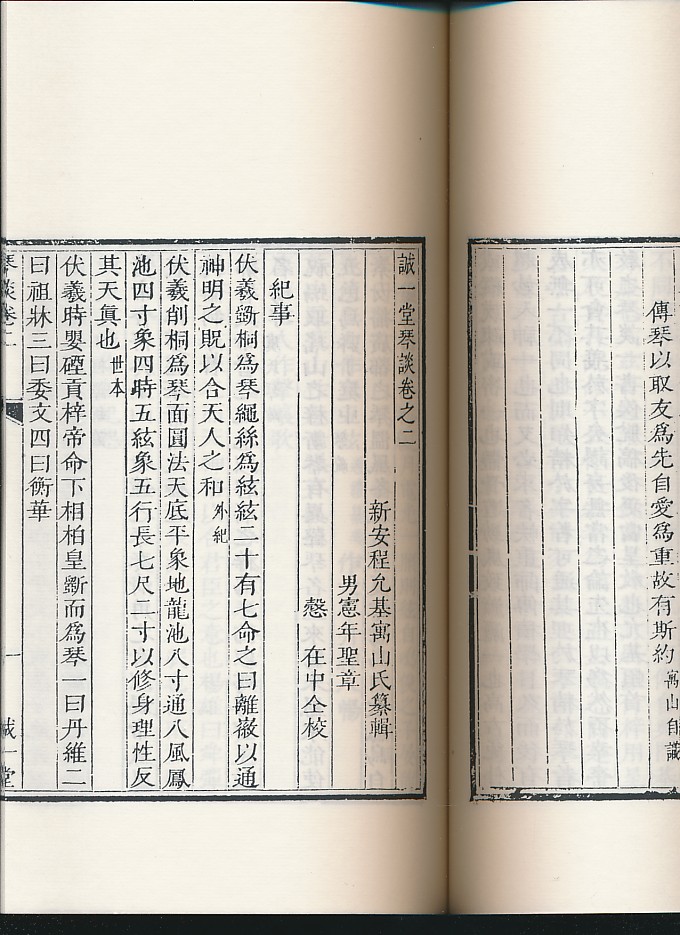 傳琴以取友爲先自愛爲重故有斯約 寓山自識
誠一堂琴談卷之二
新安程允基寓山氏纂輯
男憲年聖章
慤 在中仝校
紀事
伏羲斲桐爲琴繩絲爲絃絃二十有七命之曰離徽以通
神明之貺以合天人之和外紀
伏羲削桐爲琴面圓法天底平象地龍池八寸通八風鳳
池四寸象四時五絃象五行長七尺二寸以修身理性反
其天眞也世本
伏羲時嬰硜貢梓帝命下相柏皇斲而爲琴一曰丹維二
曰祖牀三曰委文四曰衡華
琴談卷二 一 誠一堂